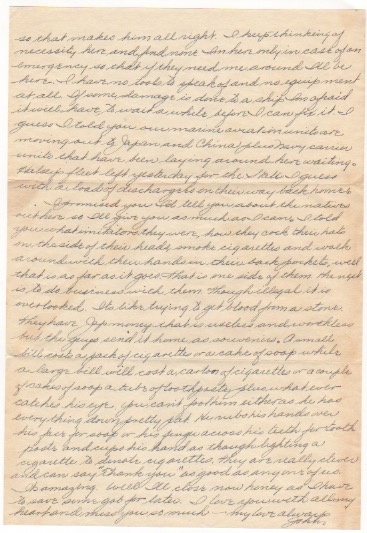 so that makes him all right. I keep thinking of
necessity here and find none. Im here only in case of an
emergency so that if they need me around I'll be
here. I have no tools to speak of and no equipment
at all. If some damage is done to a ship Im afraid
it will have to wait awhile before I can fix it. I
guess I told you our marine aviation units are
moving out to Japan and China) plus Navy carrier
units that have been laying around here waiting.
Halsey's fleet left yesterday for the States I guess
with a load of dischargees on their way back home.
I promised you I'd tell you about the natives
out here so I'll give you as much as I can. I told
you what imitators they were, how they cock their hats
on the side of their heads, smoke cigarettes and walk
around with their hands in their back pockets, well
that is as far as it goes. That is one side of them. The next
is to do business with them though illegal it is
overlooked. Its like trying to get blood from a stone.
They have Jap money that is useless and worthless
but the guys send it home, as souvenirs. A small
bill costs a pack of cigarettes or a cake of soap while
a large bill will cost a carton of cigarettes or a couple
of cakes of soap a tube of toothpaste, plus what ever
catches his eye. you can't fool him either as he has
everything down pretty pat. He rubs his hands over
his face for soap or his finger across his teeth for tooth
paste and cups his hand as though lighting a
cigarette to denote cigarettes. They are really clever
and can say "Thank you" as good as anyone of us.
Its amazing. Well I'll close now honey as I have
to save some gab for later. I love you with all my
heart and miss you so much — my love always
John